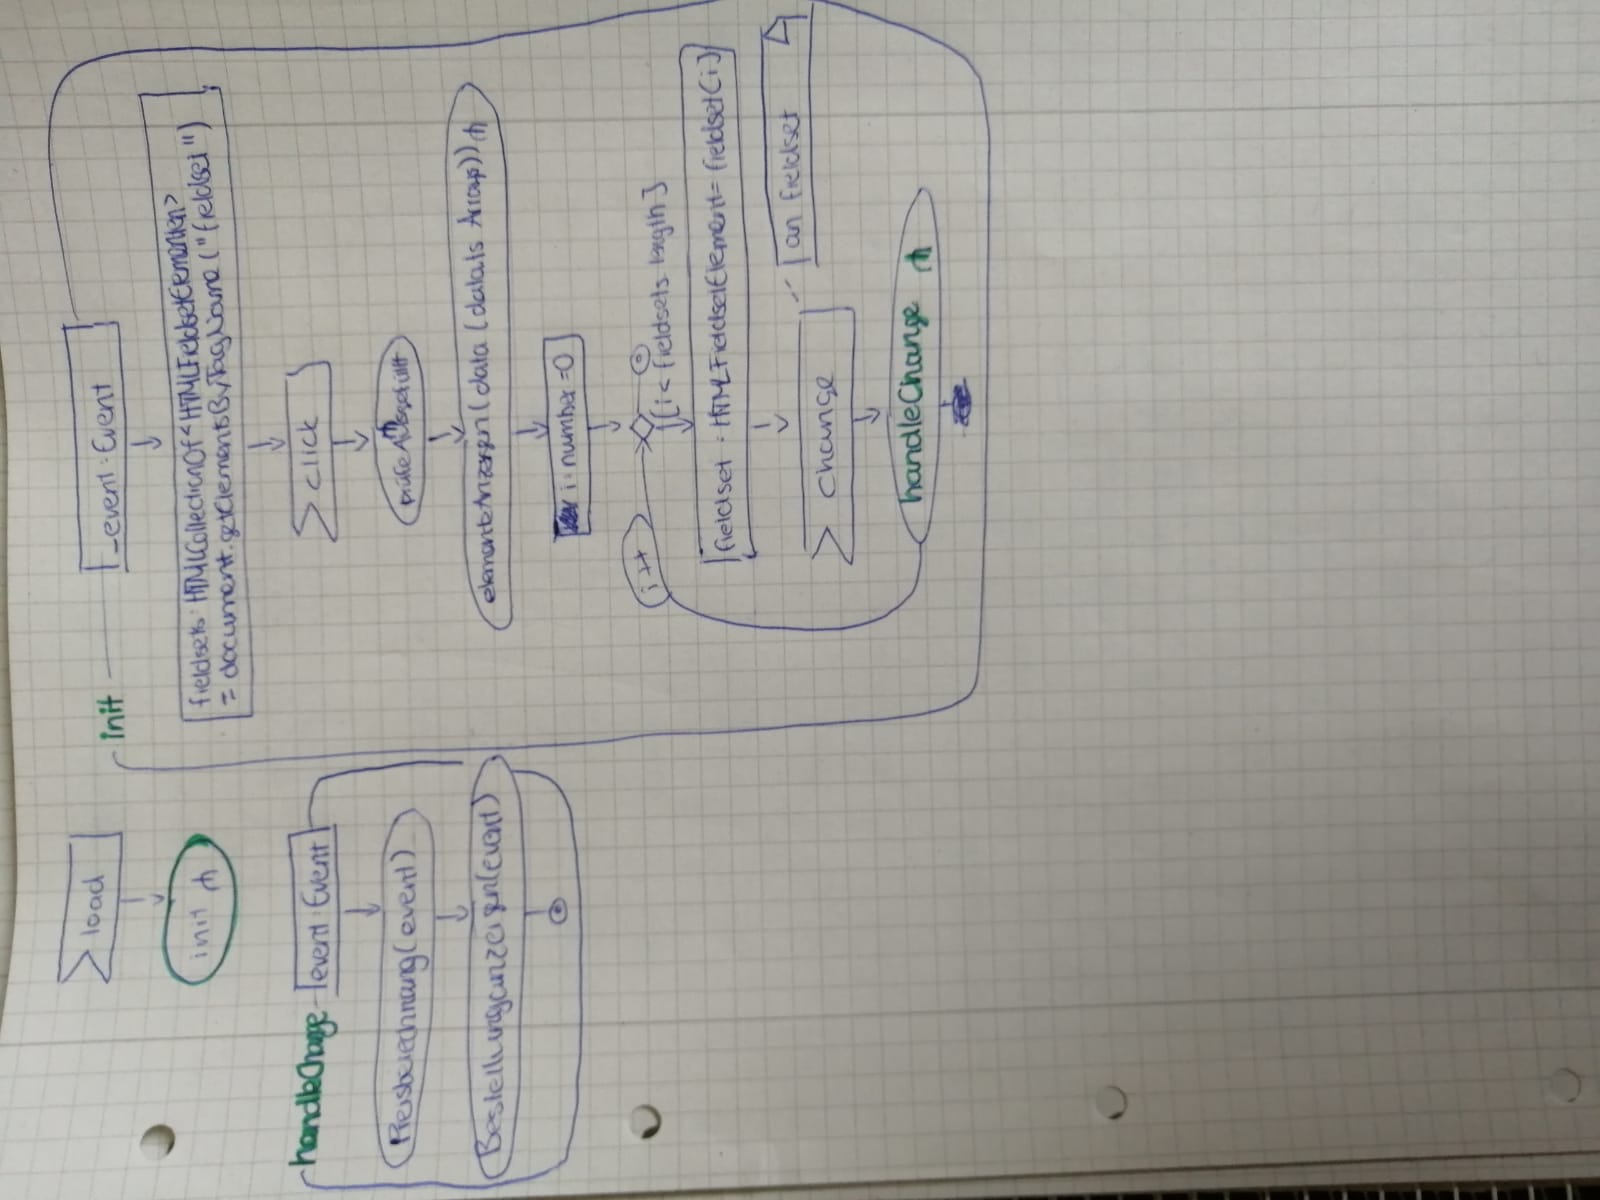 load
init
handleChange
event: Event
Preisberechnung(event)
Bestellunganzeigen(event)
init
_event: Event
fieldsets: HTMLCollectionOf<HTMLFieldsetElementen>
= document.getElementsByTagName("fieldset")
click
prüfeAusgefüllt
elementeAnzeigen(data(data.ts Arrays))
i: number = 0
i++
[i < fieldsets length]
fieldset: HTMLFieldsetElement = fieldset[i]
an fieldset
change
handleChange